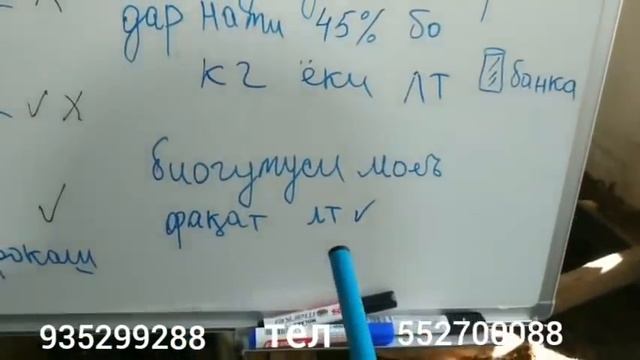 дар нати 45% бо
кг ёки лт
банка
биогумуси моеъ
фақат лт ✓
рокаш
935299288 тел 552700088